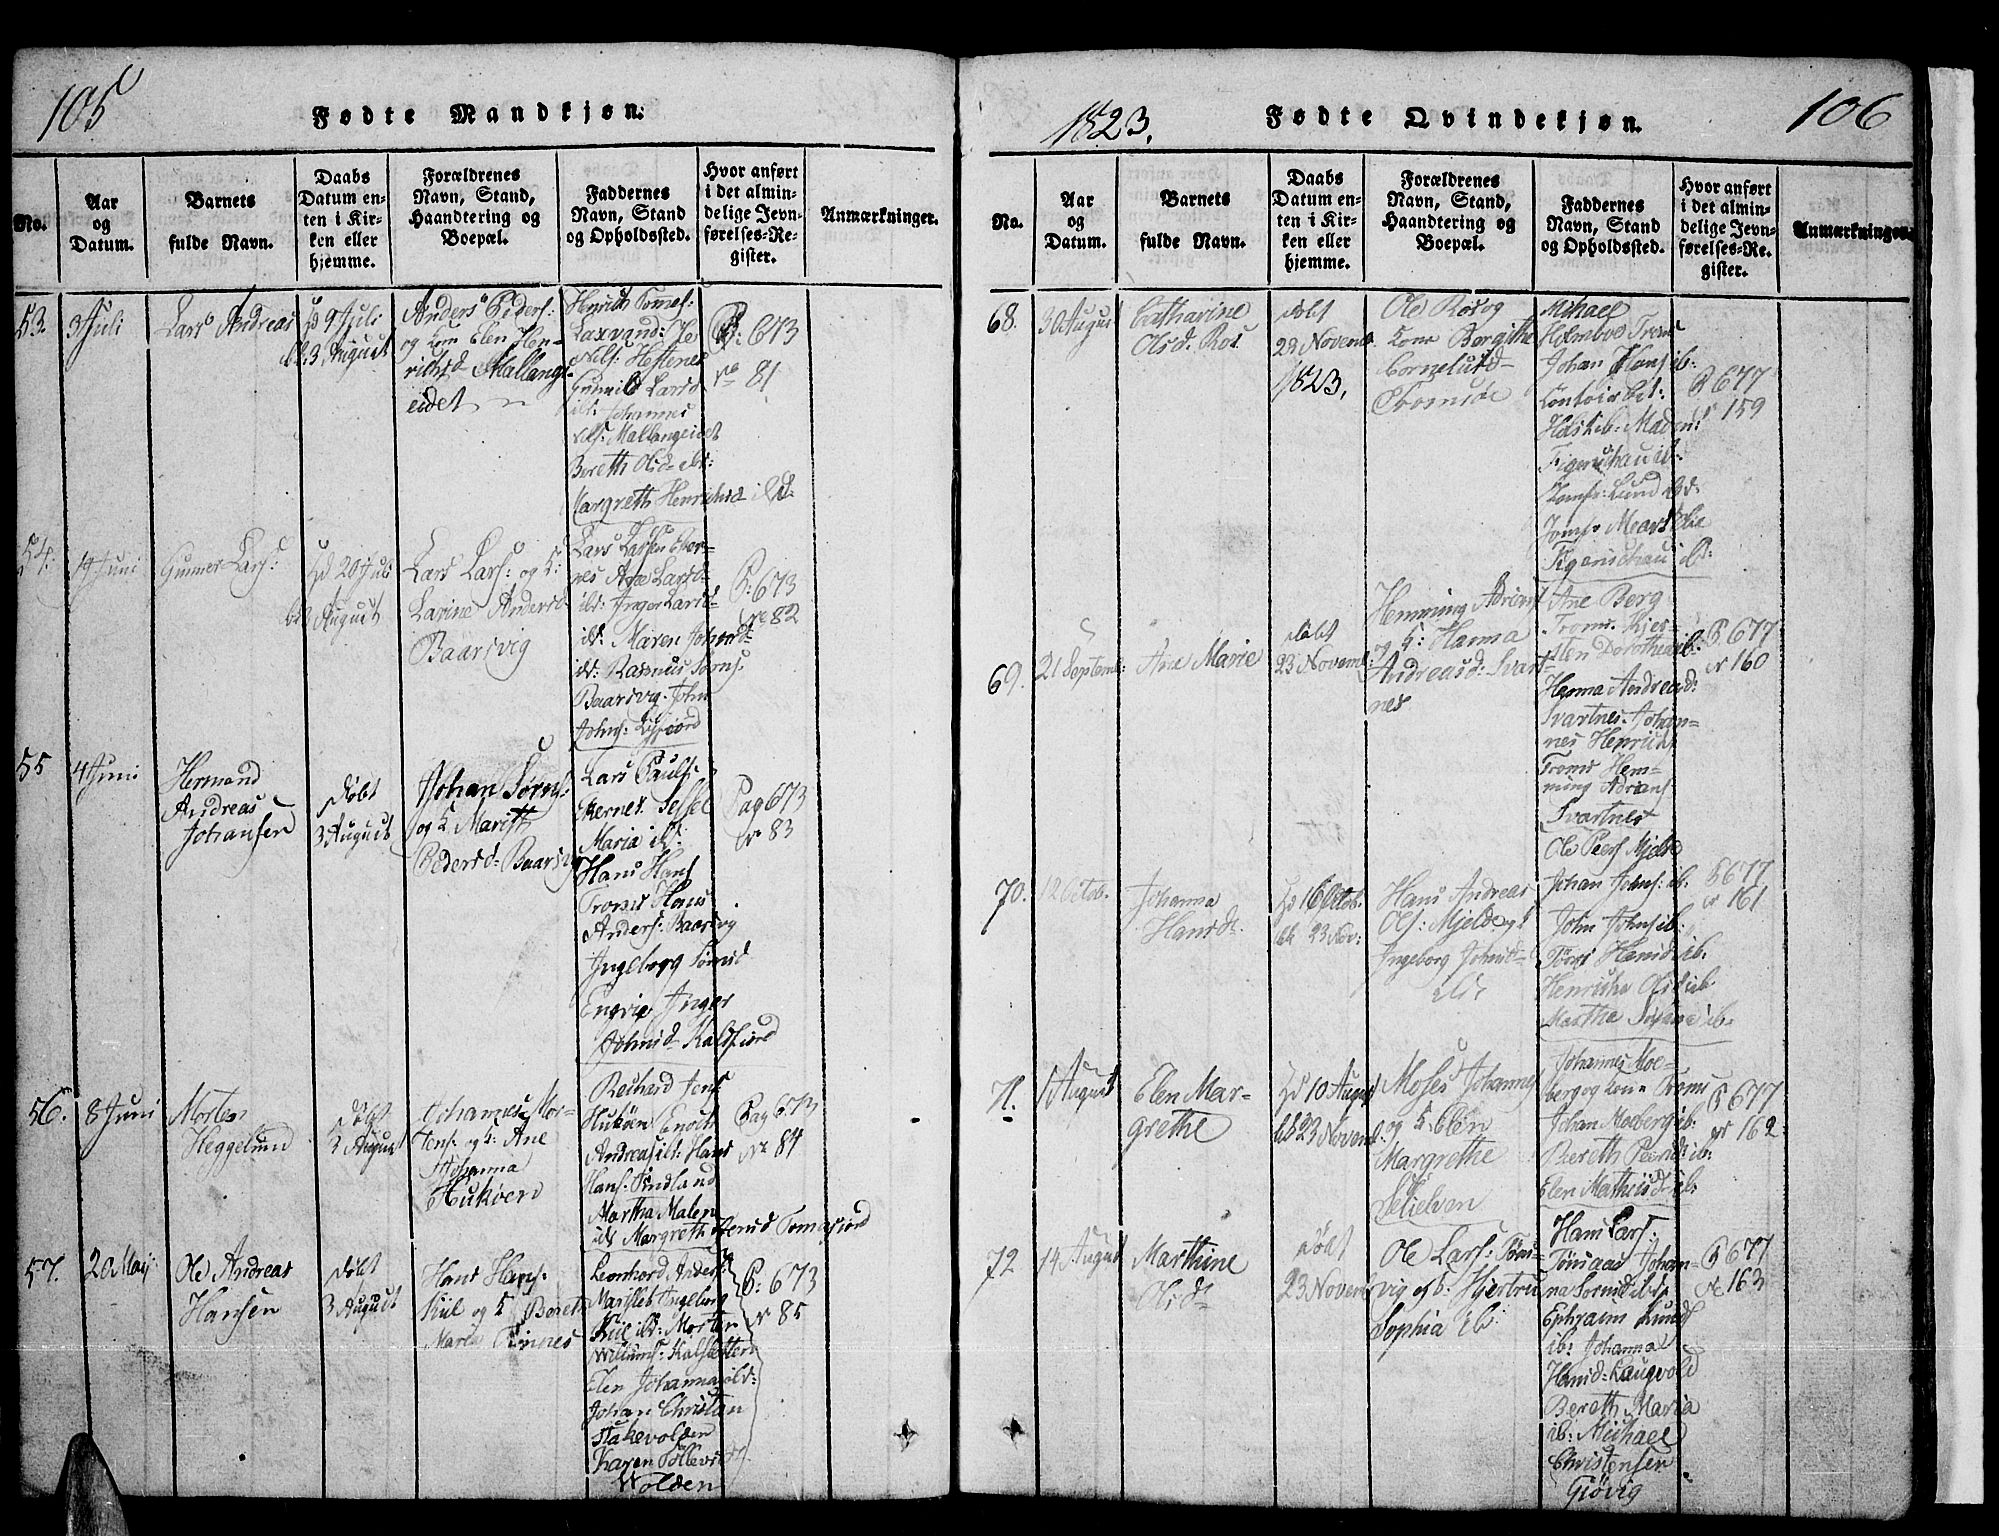 105
Fødte Mandkjøn:
No.
Aar
og
Datum.
Barnets
fulde Navn.
Daabs
Datum en-
ten i Kir-
ken eller
hjemme.
Forældrenes
Navn, Stand,
Haandtering og
Boepæl.
Faddernes
Navn, Stand
og Opholdssted.
Hvor anført
i det almin-
delige Jevn-
førelses-Re-
gister.
Anmærkninger.
53.
3 Juli
Lars Andreas
Hd 9 Juli
bk 3 August
Anders Peders:
og Kone Elen Hen-
richsd Mallangs
eidet
Henrich Tomes:
Laxvand:
Nils: Hestenes
Gunnild Larsd
ibd: Johannes
Nils: Mallangeidet
Bereth Olsd ibd:
Margreth Henrichsd ibd:
P: 673
No 81
54.
14 Juni
Gunner Lars:
Hd 20 Juli
bk 3 August
Lars Lars: og K:
Lavine Andersd
Baarsvig
Lars Larsen
nes Ane Larsd
ibd: Inger Larsd
ibd: Maren Johnsd:
ibd: Rasmus Sørns:
Baarsvig. John
Johns:
P: 673
No 82
55
4 Juni
Hermand
Andreas
Johansen
Døbt
3 August
Johan Sørns:
og K Marith
Pedersd: Baarsvig
Lars Pauls
Maria ibd:
Hans Hans
Troms Hans
Anders: Baarsvig
Ingeborg Sørnsd
Inger
Johnsd Kalsfiord
Pag 673
No 83
56.
8 Juni
Morten
Heggelund
Døbt
3 August
Johannes Mor-
tens: og K: Ane
Johanna
Hukøen
Reichard Jens
Hukøen Enoch
Andreas ibd: Hans
Hans: Tindland
Martha Malena
ibd Margreth Jensd Tomasjord
Pag 673
No 84
57.
20 May
Ole Andreas
Hansen
Døbt
3 August
Hans Hans:
Kiil og K Bereth
Maria Finnes
Leonhard Anders:
Ingeborg
Kiil ibd: Morten
Willums: Kalsletten
Elen Johanna ibd:
Johan Christian
Stakevolden
Karen Tollevsd
Wolden
P: 673
No 85
1823.
Fødte Qvindekjøn.
106
No.
Aar
og
Datum.
Barnets
fulde Navn.
Daabs
Datum en-
ten i Kir-
ken eller
hjemme.
Forældrenes
Navn, Stand,
Haandtering og
Boepæl.
Faddernes
Navn, Stand
og Opholdssted.
Hvor anført
i det almin-
delige Jevn-
førelses-Re-
gister.
Anmærkninger.
68.
30 August
Catharine
Olsd: Ros
Døbt
23 Novemb
1823,
Ole Ros og
Kone Bergithe
Cornelusd-
Tromsøe
Michael
Holmboe Troms
Johan Hans ib:
Contoirbet:
Holst ib: Madm:
Figenschau ib:
Jomfr: Lund ibd.
Jomfr Mears Olie
Figenschau ib:
P 677
No 159
69.
21 Septemb:
Ane Marie
Døbt
23 Novemb:
Hemming Adrians
og K: Hanna
Andreasd: Svart-
nes
Ane Berg
Troms. Kjer-
sten Dorothea ib:
Hanna Andreasd:
Svartnes. Johan-
nes Henrichs
Troms Hem-
ming Adrians
Svartnes
P 677
No 160
70.
12 Octob.
Johanna
Hansdt.
Hd 16 Octob.
bk 23 Nov:
Hans Andreas
Ols: Mjelde og K
Ingeborg Johnsd-
Ole Peers Mjelde
Johan Johns: ib.
John Johns ib:
Hansd ib:
Olsd ib
Marthe ib:
P 677
No 161
71.
1 August
Elen Mar-
grethe
Hd 10 August
bk 23 Novemb.
Moses Johannes
og K Elen
Margrethe
Selelven
Johannes Moe-
berg og Kone Troms
Johan Moeberg ib:
Bereth Peersd: ib:
Elen Mathisd ib:
P 677
No 162
72
14 August
Marthine
Olsdt
Døbt
23 Novemb
Ole Lars: Tøns-
vig og K: Hjertru
Sophia ib:
Hans Lars:
Tønsaas Johan-
na Sørnsd ibd.
Ephraim Lund
ib: Johanna
Hansd: Laugvold
Bereth Maria
ib: Michael
Christensen
Giøvig
P 677
No 163